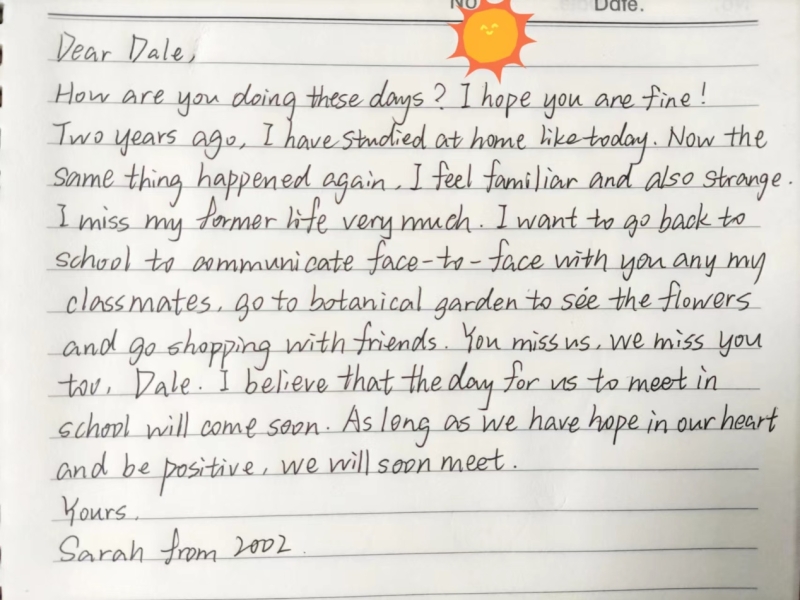 No
Date.
Dear Dale,
How are you doing these days? I hope you are fine!
Two years ago, I have studied at home like today. Now the
same thing happened again. I feel familiar and also strange.
I miss my former life very much. I want to go back to
school to communicate face-to-face with you any my
classmates, go to botanical garden to see the flowers
and go shopping with friends. You miss us, we miss you
too, Dale. I believe that the day for us to meet in
school will come soon. As long as we have hope in our heart
and be positive, we will soon meet.
Yours,
Sarah from 2002.